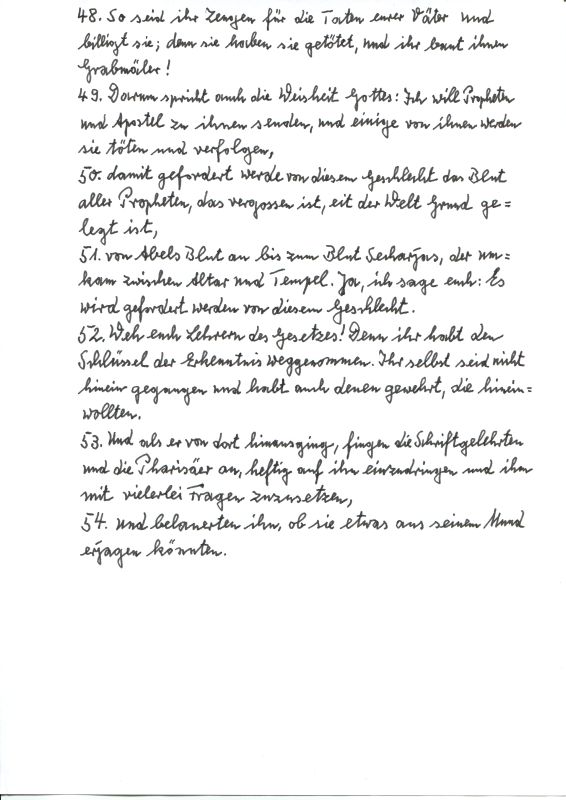 48. So seid ihr Zeugen für die Taten eurer Väter und
billigt sie; denn sie haben sie getötet, und ihr baut ihnen
Grabmäler!
49. Darum spricht auch die Weisheit Gottes: Ich will Propheten
und Apostel zu ihnen senden, und einige von ihnen werden
sie töten und verfolgen,
50. damit gefordert werde von diesem Geschlecht das Blut
aller Propheten, das vergossen ist, eit der Welt Grund ge=
legt ist,
51. von Abels Blut an bis zum Blut Secharjas, der um=
kam zwischen Altar und Tempel. Ja, ich sage euch: Es
wird gefordert werden von diesem Geschlecht.
52. Weh euch Lehrern des Gesetzes! Denn ihr habt den
Schlüssel der Erkenntnis weggenommen. Ihr selbst seid nicht
hinein gegangen und habt auch denen gewehrt, die hinein=
wollten.
53. Und als er von dort hinausging, fingen die Schriftgelehrten
und die Pharisäer an, heftig auf ihn einzudringen und ihm
mit vielerlei Fragen zuzusetzen,
54. und belauerten ihn, ob sie etwas aus seinem Mund
erjagen könnten.